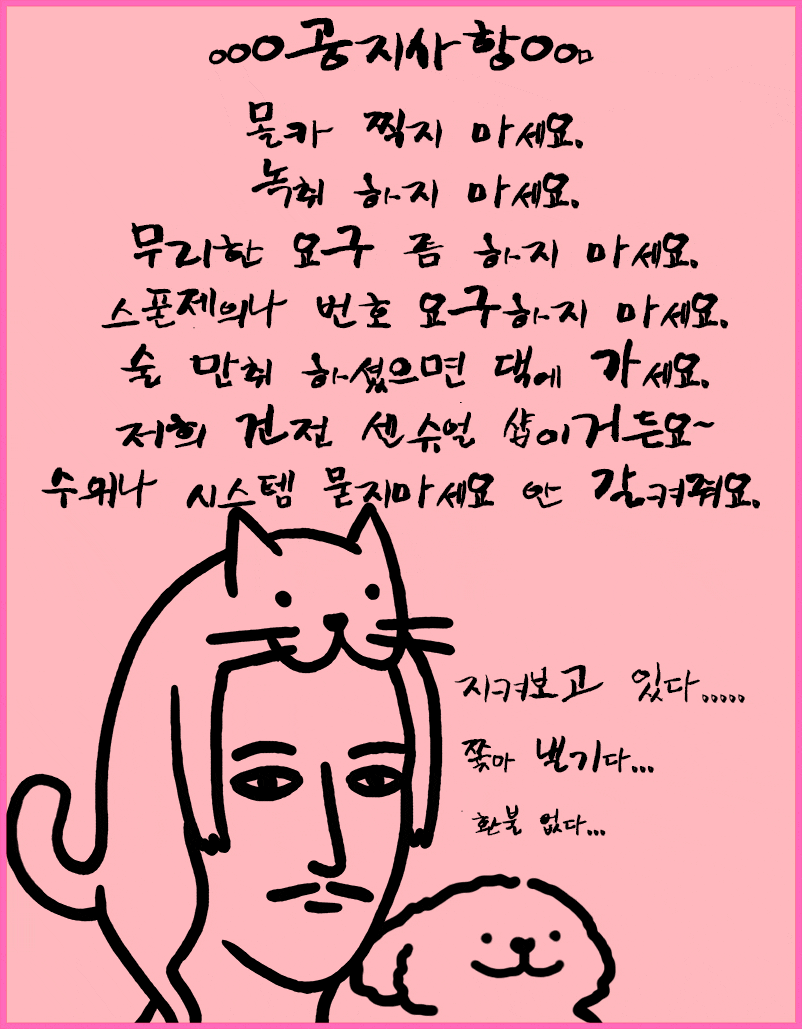 ooo공지사항ooo
몰카 찍지 마세요.
녹취 하지 마세요.
무리한 요구 좀 하지 마세요.
스폰제의나 번호 요구하지 마세요.
술 만취 하셨으면 댁에 가세요.
저희 건전 센슈얼 샵이거든요~
수위나 시스템 묻지마세요 안 갈켜줘요.
지켜보고 있다.....
쫓아 낸기다...
환불 없다...